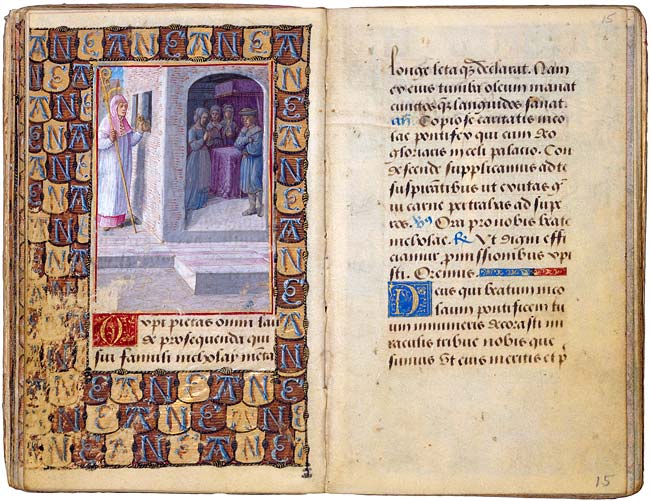 ANEANEANEA
O xpi pietas omni lau
de prosequenda qui
sui famuli nicholay meri
EANEANE
ANEANE
NEANEAN
15
longe leteq3 declarat. Nam
ex eius tumba oleum manat
cunctosq3 languidos sanat.
an Copiose caritatis nico
lae pontifex qui cum deo
gloriaris in celi palacio. Con
descende supplicamus ad te
suspirantibus ut exutos
ui carne pertrahas ad supe
ros. V Ora pro nobis beate
nicholae. R Ut digni effi
ciamur promissionibus xpi
sti. Oremus.
Deus qui beatum nico
laum pontificem tu
um innumeris decorasti mi
raculis tribue nobis que
sumus Ut eius meritis et p
15